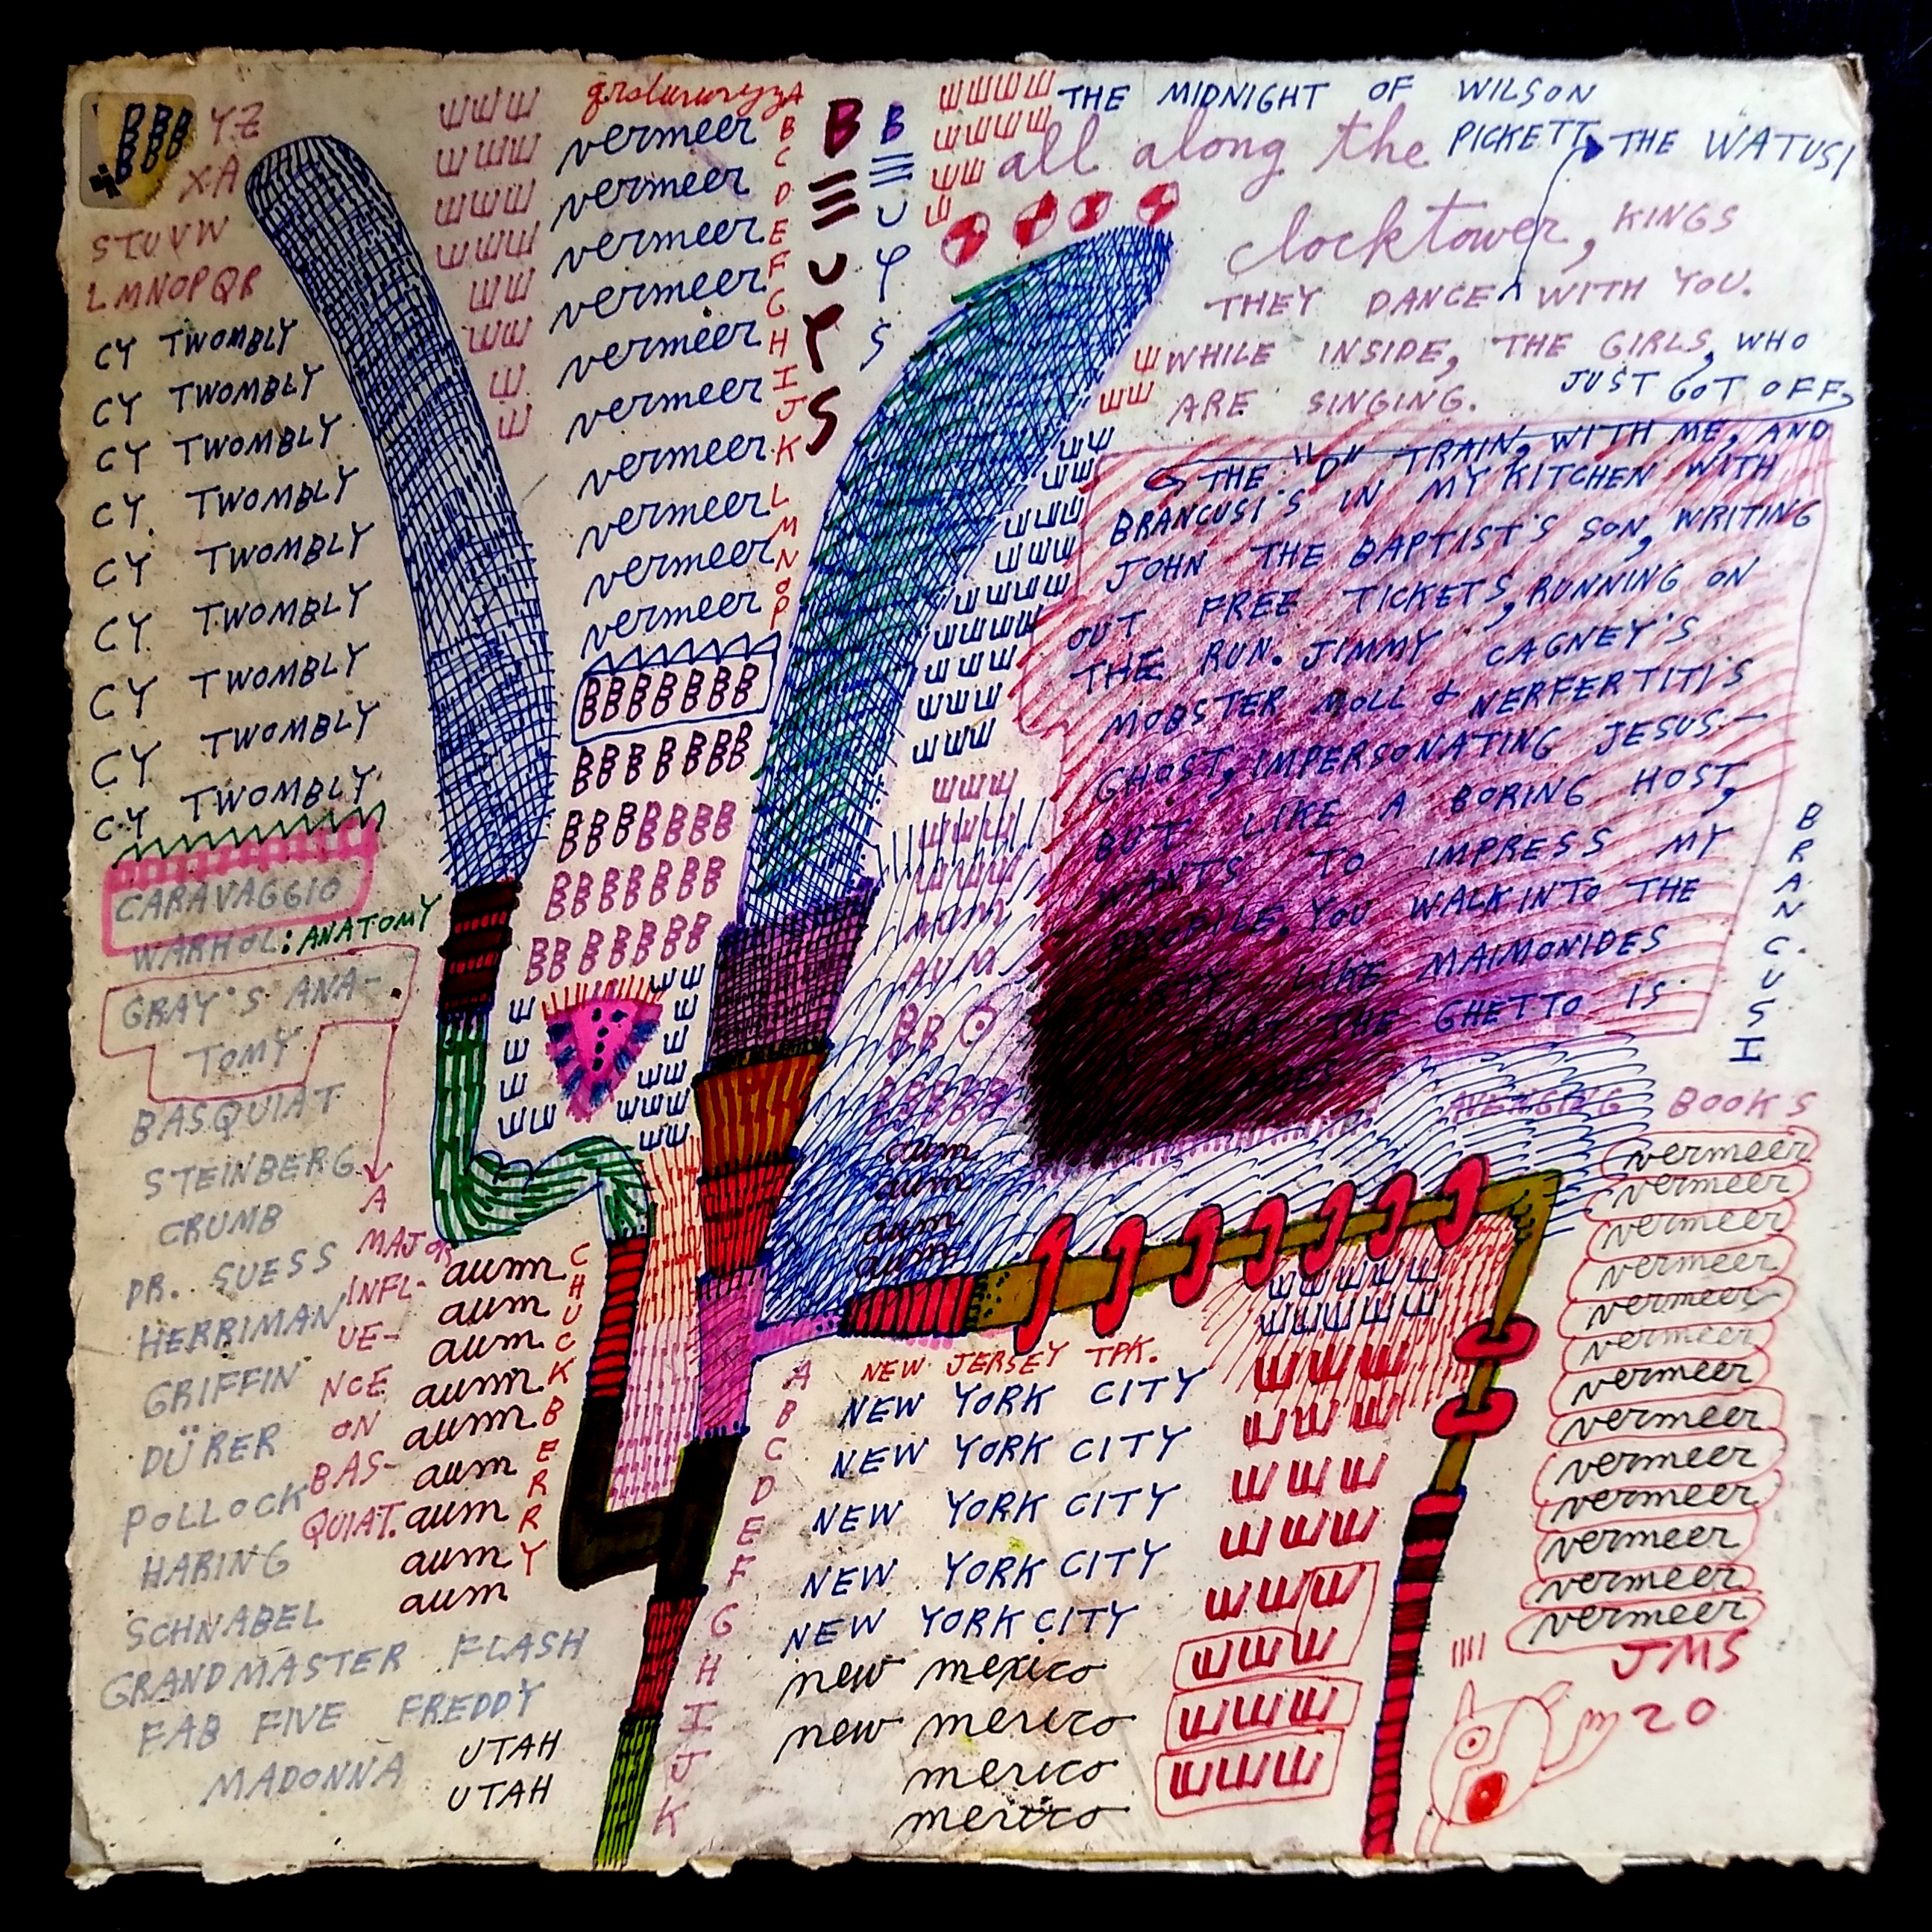 BBB
BBB
YZ
XA
STUVW
LMNOPQR
CY TWOMBLY
CY TWOMBLY
CY TWOMBLY
CY. TWOMBLY
CY TWOMBLY
CY. TWOMBLY
CY TWOMBLY
CY TWOMBLY
CY TWOMBLY
CARAVAGGIO
WARHOL: ANATOMY
GRAY'S ANA-
TOMY
BASQUIAT
STEINBERG
CRUMB
DR. SUESS
HERRIMAN
GRIFFIN
DÜRER
POLLOCK
HARING
SCHNABEL
GRANDMASTER FLASH
FAB FIVE FREDDY
MADONNA
UTAH
UTAH
A
MAJOR
INFL-
UE-
NCE
ON
BAS-
QUIAT.
aum
aum
aum
aum
aum
aum
aum
aum
aum
CHUCK BERRY
vermeer
vermeer
vermeer
vermeer
vermeer
vermeer
vermeer
vermeer
vermeer
vermeer
A
B
C
D
E
F
G
H
I
J
K
L
M
N
O
P
BBBBBBB
BBBBBBB
BBBBBBB
BBBBBBB
BBBBBBB
THE MIDNIGHT OF WILSON
PICKETT, THE WATUSI
all along the
clocktower, KINGS
THEY DANCE WITH YOU.
WHILE INSIDE, THE GIRLS, WHO
JUST GOT OFF
ARE SINGING.
THE "D" TRAIN, WITH ME, AND
BRANCUSI'S IN MY KITCHEN WITH
JOHN THE BAPTIST'S SON, WRITING
OUT FREE TICKETS, RUNNING ON
THE RUN. JIMMY CAGNEY'S
MOBSTER MOLL & NERFERTITI'S
GHOST, IMPERSONATING JESUS—
BUT LIKE A BORING HOST,
WANTS TO IMPRESS MY
PROFILE. YOU WALK INTO THE
PARTY LIKE MAIMONIDES
THAT THE GHETTO IS
BRANCUSI
AVENGING BOOKS
AUM
AUM
BB
aum
aum
aum
aum
NEW JERSEY TPK.
A
B
C
D
E
F
G
H
I
J
K
NEW YORK CITY
NEW YORK CITY
NEW YORK CITY
NEW YORK CITY
NEW YORK CITY
new mexico
new mexico
mexico
mexico
vermeer
vermeer
vermeer
vermeer
vermeer
vermeer
vermeer
vermeer
vermeer
vermeer
vermeer
vermeer
vermeer
JMS
20